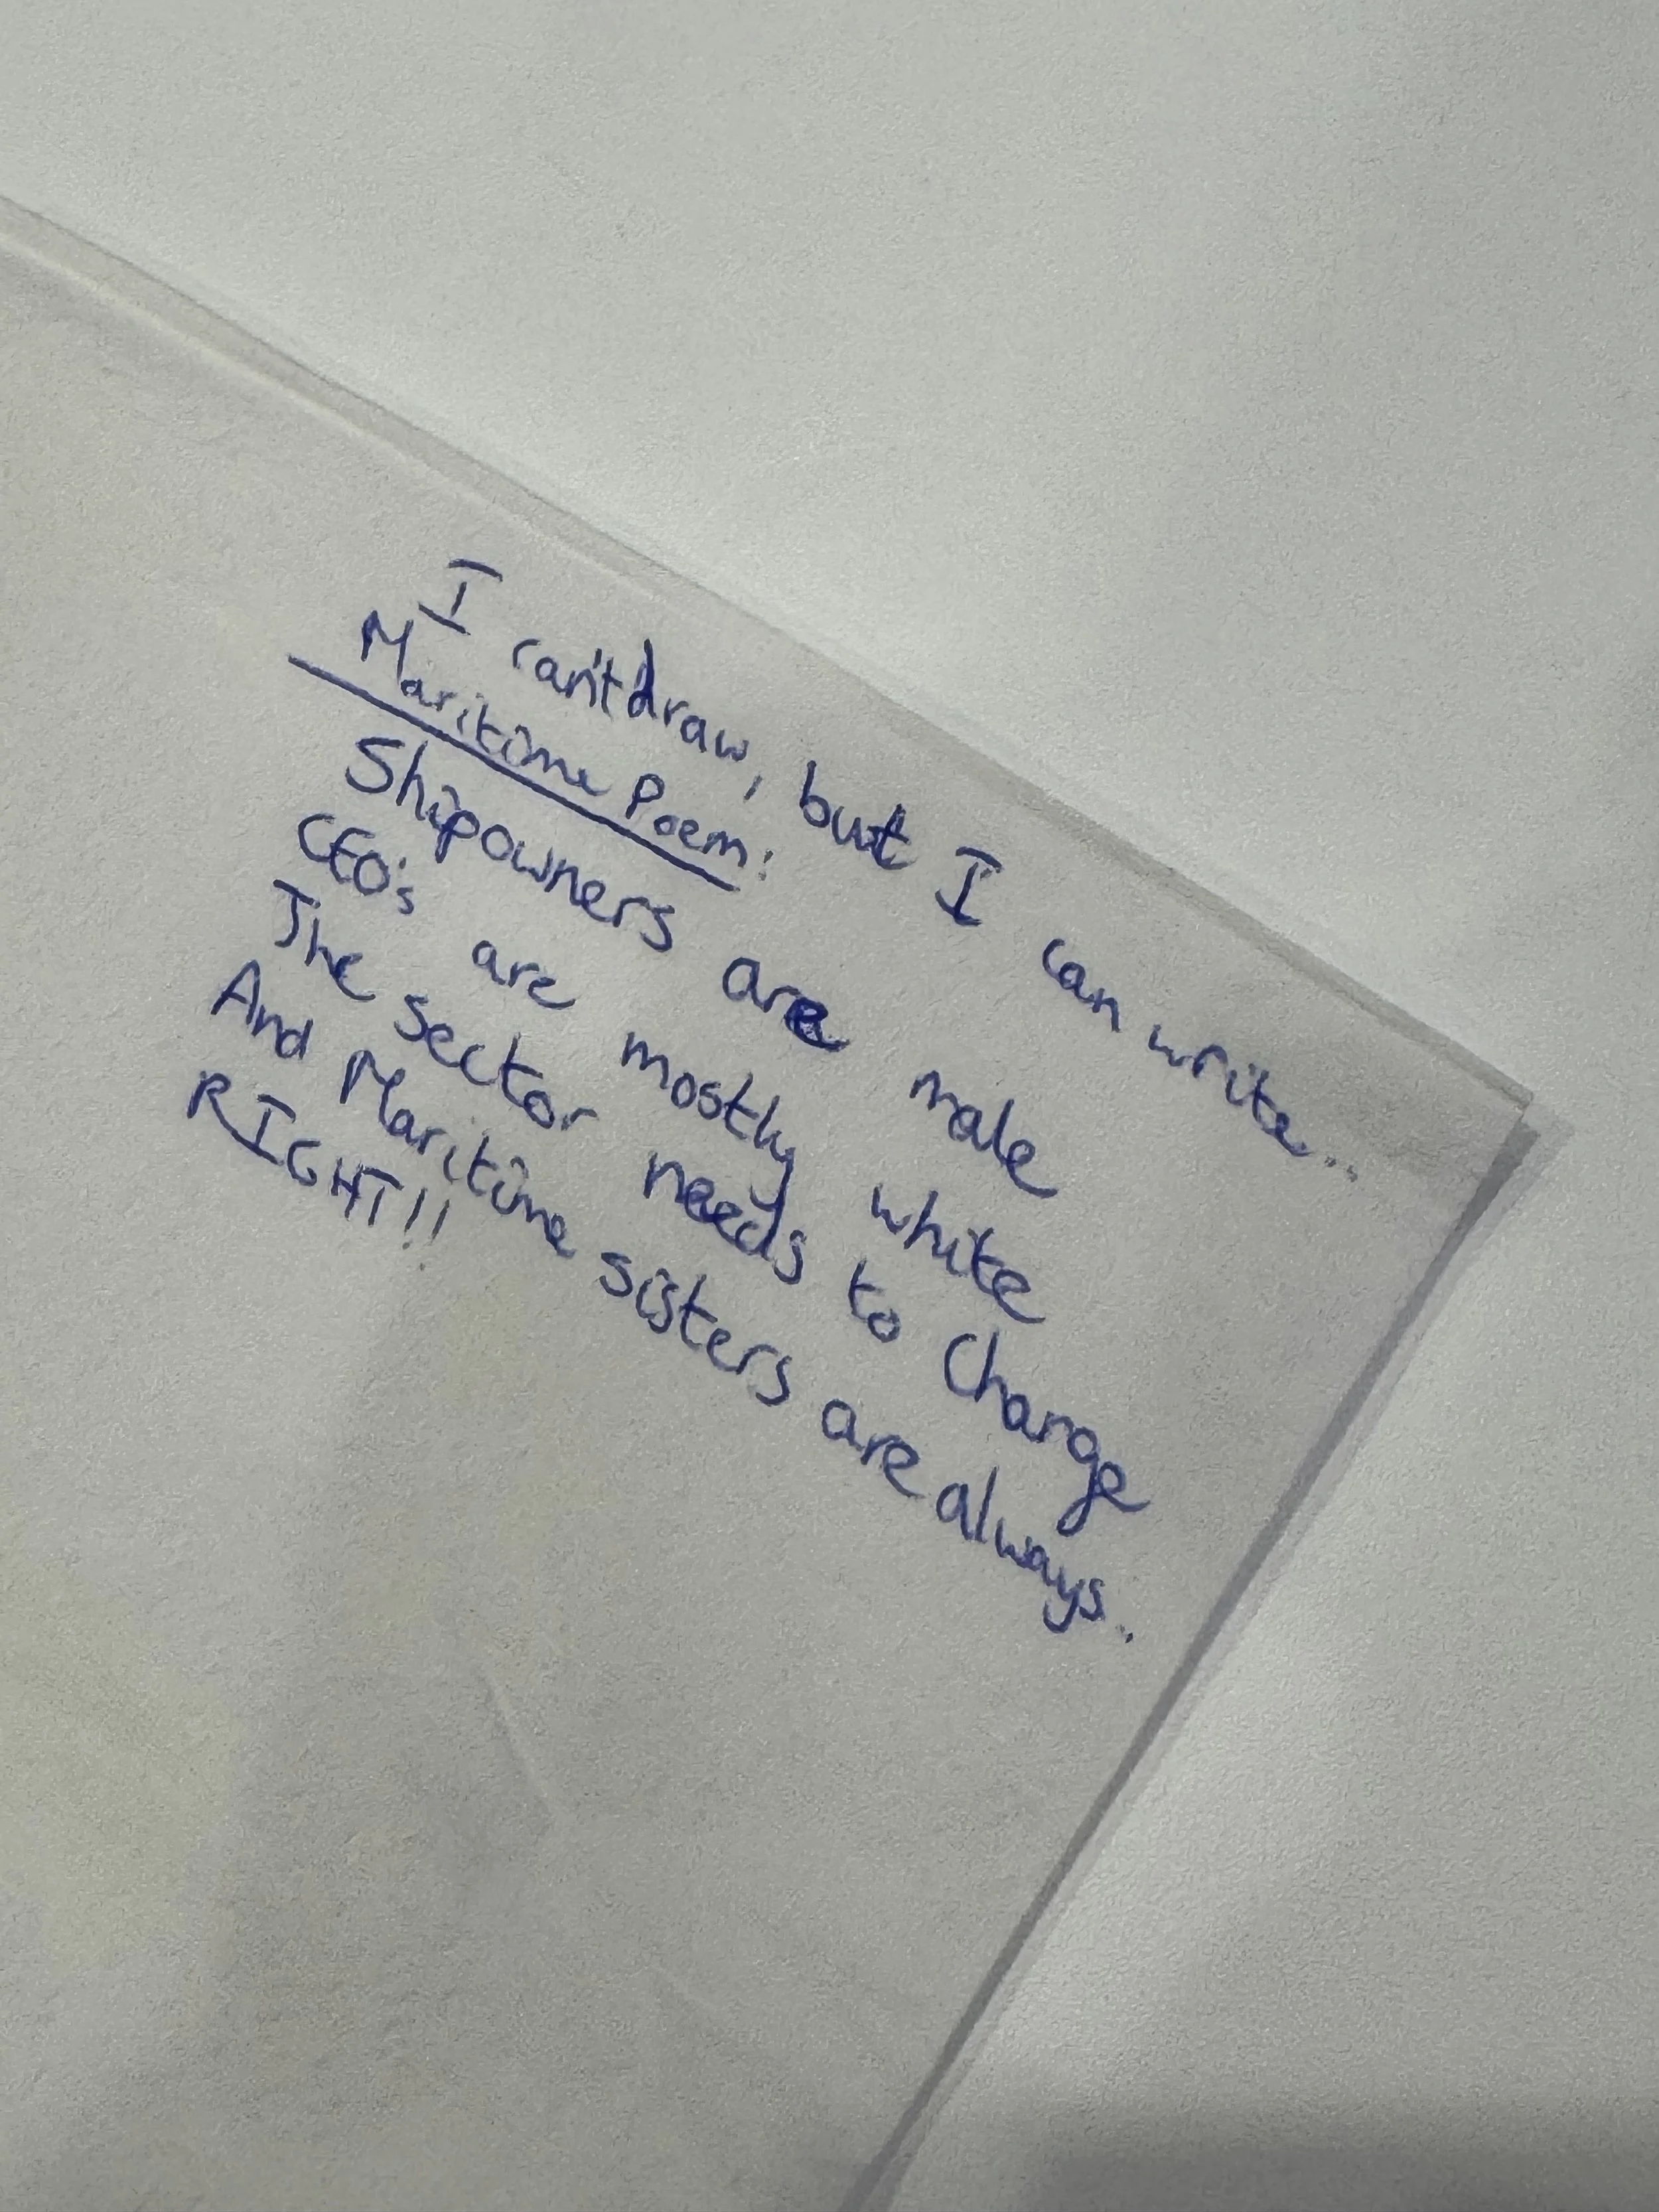 I can't draw, but I can write...
Maritime Poem:
Shipowners are male
CEO's are mostly white
The sector needs to Change
And Maritime sisters are always..
RIGHT!!